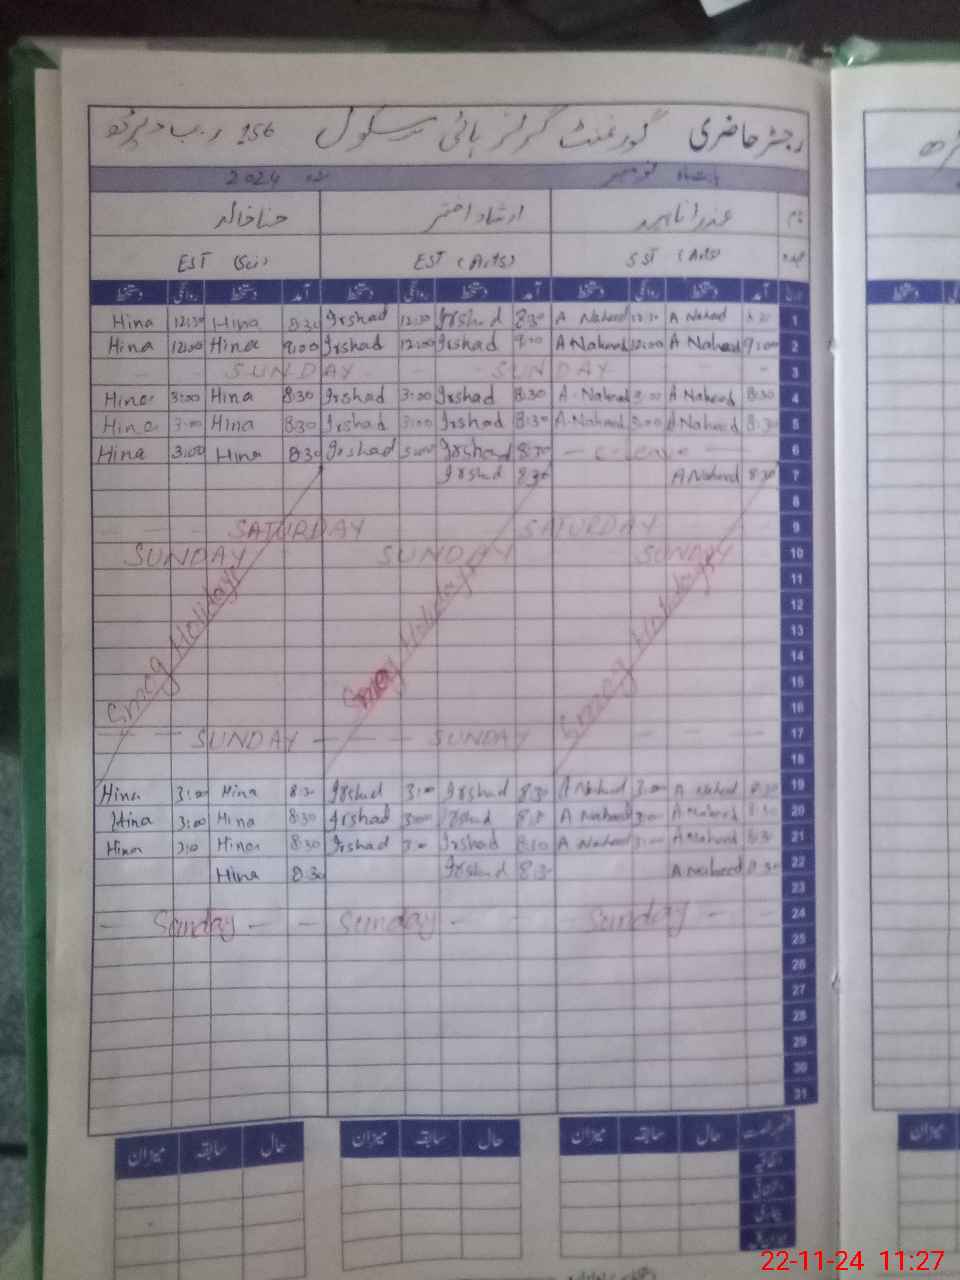 رجسٹر حاضری گورنمنٹ گرلز ہائی سکول 156 ر۔ب
بابت ماہ نومبر 2024
نام عذرا ناہید ارشاد اختر حنا خالد
عہدہ SST (Arts) EST (Arts) EST (Sci)
آمد دستخط روانگی دستخط آمد دستخط روانگی دستخط آمد دستخط روانگی دستخط
Hina 12:30 Hina 8:30 Irshad 12:30 Irshad 8:30 A Naheed 12:30 A Naheed 1
Hina 12:00 Hina 9:00 Irshad 12:00 Irshad 9:00 A Naheed 12:00 A Naheed 9:00 2
- - SUNDAY - - SUNDAY - - 3
Hina 3:00 Hina 8:30 Irshad 3:00 Irshad 8:30 A. Naheed 3:00 A Naheed 8:30 4
Hina 3:00 Hina 8:30 Irshad 3:00 Irshad 8:30 A. Naheed 3:00 A Naheed 8:30 5
Hina 3:00 Hina 8:30 Irshad 3:00 Irshad 8:30 — C-leave — 6
Irshad 8:30 A Naheed 8:30 7
8
- - - SATURDAY SATURDAY - - 9
SUNDAY SUNDAY SUNDAY 10
Smog Holidays Smog Holidays Smog Holidays
11
12
13
14
15
16
- - SUNDAY - - - SUNDAY - - - 17
18
Hina 3:00 Hina 8:30 Irshad 3:00 Irshad 8:30 A Naheed 3:00 A Naheed 8:30 19
Hina 3:00 Hina 8:30 Irshad 3:00 Irshad 8:30 A Naheed 3:00 A Naheed 8:30 20
Hina 3:0 Hina 8:30 Irshad 3:00 Irshad 8:30 A Naheed 3:00 A Naheed 8:30 21
Hina 8:30 Irshad 8:30 A Naheed 8:30 22
23
- Sunday - - Sunday - - Sunday - - 24
25
26
27
28
29
30
31
حال سابقہ میزان حال سابقہ میزان حال سابقہ میزان
اتفاقیہ
بیماری
22-11-24 11:27